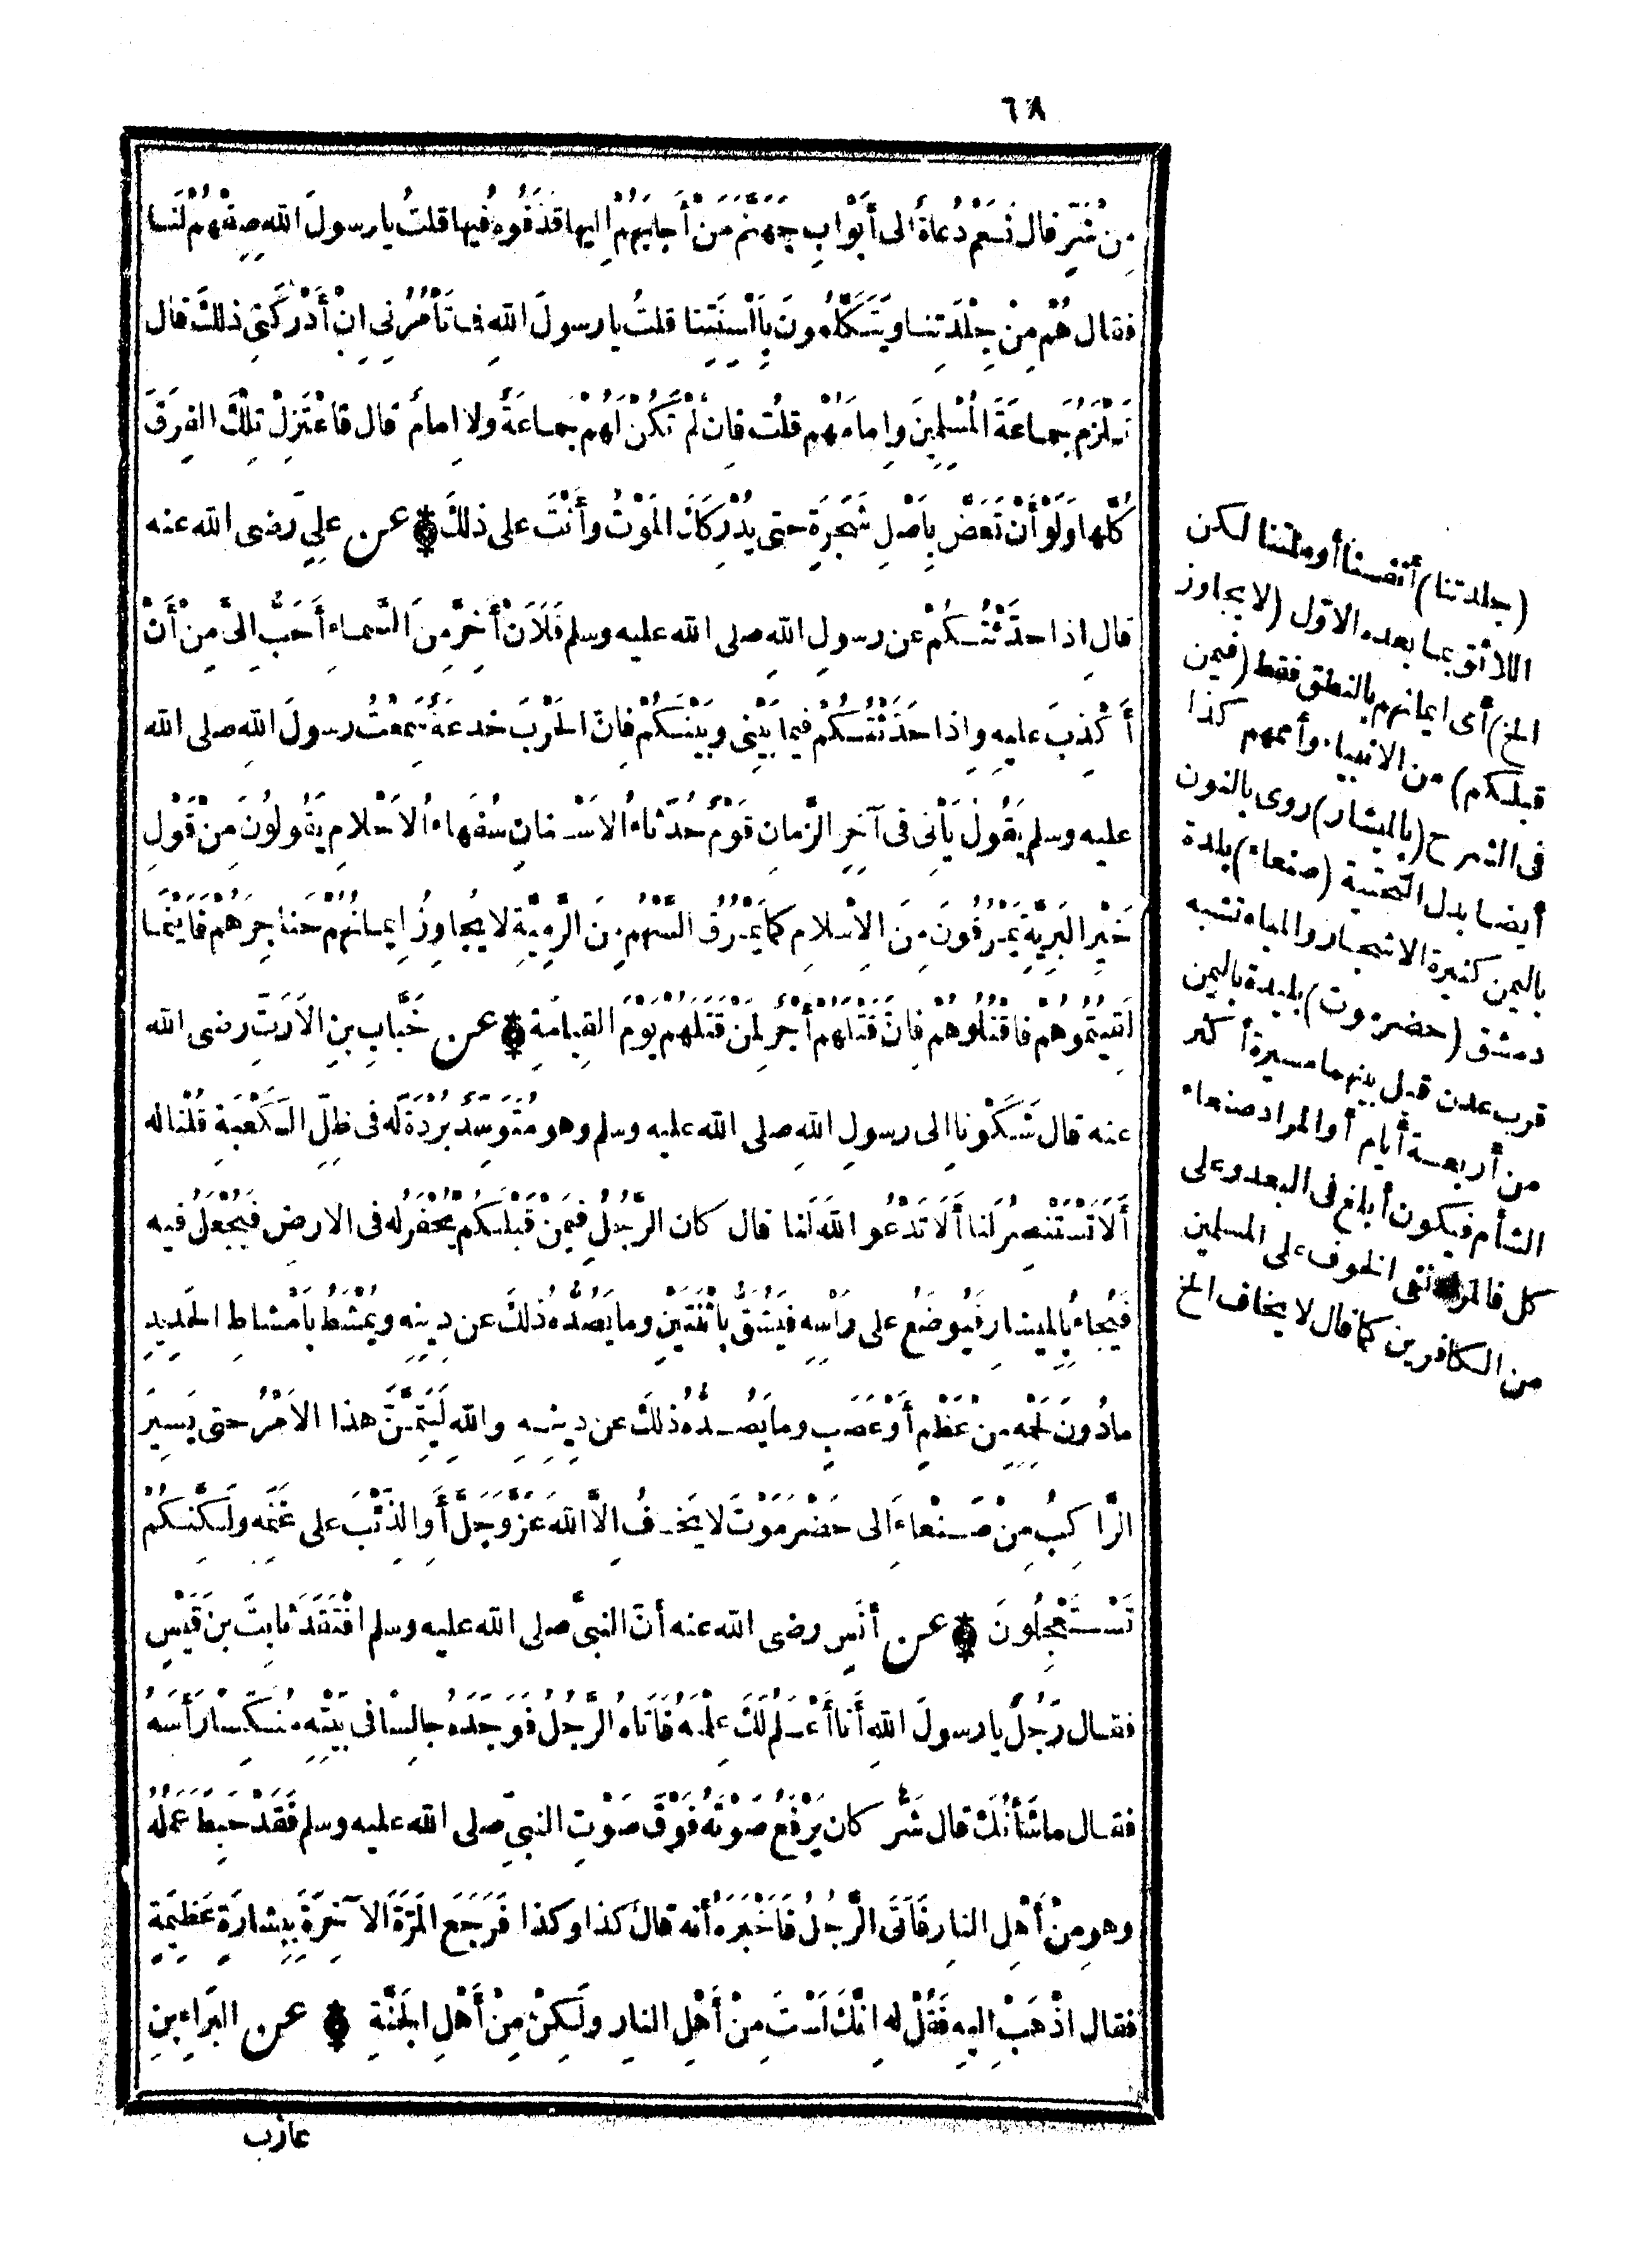 ٦٨
مِنْ شَرٍّ قال نَعَمْ دُعاةٌ الى أَبْوابِ جَهَنَّمَ مَنْ أَجابَهُمْ اِليها قَذَفُوهُ فيها قلتُ يا رسولَ الله صِفْهُمْ لَنا
فقال هُمْ مِنْ جِلْدَتِنا ويَتَكَلَّمُونَ بِأَلْسِنَتِنا قلتُ يا رسولَ اللهِ فما تَأْمُرُنِى اِنْ أَدْرَكَنِى ذلكَ قال
تَلْزَمُ جَماعَةَ المُسْلِمِينَ وإِمامَهُم قلتُ فإِن لَمْ تَكُنْ لَهُمْ جَماعَةٌ ولا إِمامٌ قال فاعْتَزِلْ تِلْكَ الفِرَقَ
كُلَّها وَلَوْ أَنْ تَعَضَّ بِأَصْلِ شَجَرَةٍ حتى يُدْرِكَكَ المَوْتُ وأَنْتَ على ذلكَ عن علِيٍّ رضى الله عنه
قال اِذا حدَّثْتُكُمْ عن رسولِ اللهِ صلى الله عليه وسلم فَلَأَنْ أَخِرَّ مِنَ السَّماءِ أَحَبُّ اِلىَّ مِنْ أَنْ
أَكْذِبَ عليه وإِذا حَدَّثْتُكُمْ فيما بَيْنِى وبَيْنَكُمْ فإِنَّ الحَرْبَ خدعَةٌ سَمِعْتُ رسولَ اللهِ صلى الله
عليه وسلم يَقُولُ يَأْتِى فى آخِرِ الزَّمانِ قَوْمٌ حُدَثاءُ الاَسْنانِ سُفَهاءُ الاَحْلامِ يَقُولُونَ مِنْ قَوْلِ
خَيْرِ البَرِيَّةِ يَمْرُقُونَ مِنَ الاِسْلامِ كما يَمْرُقُ السَّهْمُ مِنَ الرَّمِيَّةِ لا يُجاوِزُ إِيمانُهُمْ حَناجِرَهُمْ فَأَيْنَما
لَقِيتُمُوهُمْ فاقْتُلُوهُمْ فإِنَّ قَتْلَهُمْ أَجْرٌ لِمَنْ قَتَلَهُم يَوْمَ القِيامَةِ عن خَبَّابِ بنِ الاَرَتِّ رضى الله
عنه قال شَكَوْنا اِلى رسولِ اللهِ صلى الله عليه وسلم وهو مُتَوَسِّدٌ بُرْدَةً لَه فى ظِلِّ الكَعْبَةِ قُلْنا له
أَلَا تَسْتَنْصِرُ لَنا أَلَا تَدْعُو اللهَ لَنا قال كان الرَّجُلُ فِيمَنْ قَبْلَكُم يُحْفَرُ له فى الارضِ فَيُجْعَلُ فيه
فَيُجاءُ بِالمِيشارِ فَيُوضَعُ على رَأْسِهِ فَيُشَقُّ بِاثْنَتَيْنِ وما يَصُدُّهُ ذلكَ عن دِينِهِ ويُمْشَطُ بِأَمْشاطِ الحَدِيدِ
ما دُونَ لَحْمِهِ مِنْ عَظْمٍ أَوْ عَصَبٍ وما يَصُدُّهُ ذلكَ عن دِينِهِ واللهِ لَيُتِمَّنَّ هذا الاَمْرَ حتى يَسِيرَ
الرَّاكِبُ مِنْ صَنْعاءَ اِلى حَضْرَمَوْتَ لا يَخافُ اِلَّا اللهَ عَزَّ وَجَلَّ أَوِ الذِّئْبَ على غَنَمِهِ ولَكِنَّكُمْ
تَسْتَعْجِلُونَ عن أَنَسٍ رضى الله عنه أنَّ النبىَّ صلى الله عليه وسلم افْتَقَدَ ثابِتَ بنَ قَيْسٍ
فقال رَجُلٌ يا رسولَ اللهِ أَنا أَعْلَمُ لَكَ عِلْمَهُ فأَتاهُ الرَّجُلُ فَوَجَدَهُ جالِسًا فى بَيْتِهِ مُنَكِّسًا رَأْسَهُ
فقال ما شَأْنُكَ قال شَرٌّ كان يَرْفَعُ صَوْتَهُ فَوْقَ صَوْتِ النبىِّ صلى الله عليه وسلم فَقَدْ حَبِطَ عَمَلُهُ
وهو مِنْ أَهْلِ النارِ فَأَتَى الرَّجُلُ فَأَخْبَرَهُ أنه قالَ كذا وكذا فَرَجَعَ المَرَّةَ الآخِرَةَ بِبِشارَةٍ عَظِيمَةٍ
فقال اذْهَبْ اِليه فَقُلْ له اِنَّكَ لَسْتَ مِنْ أَهْلِ النارِ ولَكِنْ مِنْ أَهْلِ الجَنَّةِ عن البَراءِ بنِ
عازب
(جلدتنا) أنفسنا أو ملتنا لكن
اللائق بما بعده الاوّل (لا يجاوز
الخ) أى ايمانهم بالنطق فقط (فيمن
قبلكم) من الانبياء وأممهم كذا
فى الشرح (بالميشار) روى بالنون
أيضا بدل التحتية (صنعاء) بلدة
باليمن كثيرة الاشجار والمياه تشبه
دمشق (حضرموت) بليدة باليمن
قرب عدن قيل بينهما مسيرة أكثر
من أربعة أيام أو المراد صنعاء
الشأم فيكون أبلغ فى البعد وعلى
كل فالمراد نفى الخوف على المسلمين
من الكافرين كما قال لا يخاف الخ